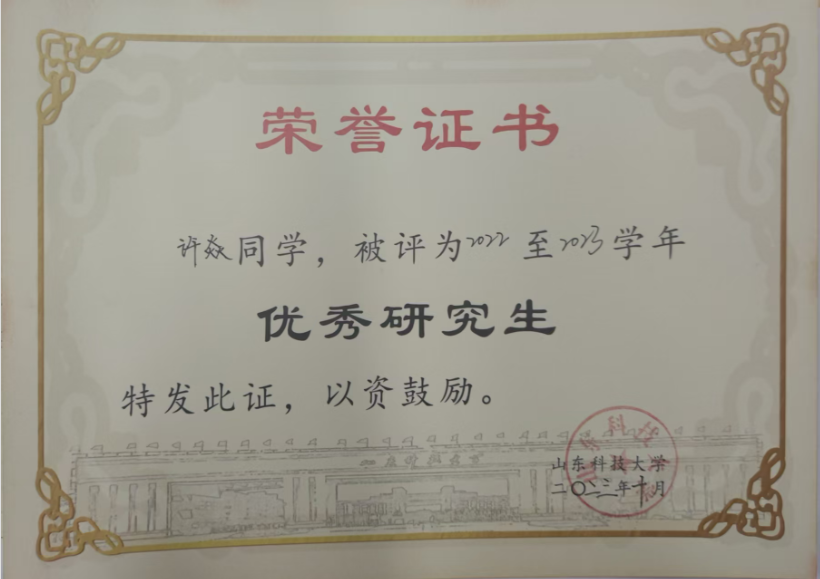 荣誉证书
许焱同学，被评为2022至2023学年
优秀研究生
特发此证，以资鼓励。
山东科技大学
二〇二三年十月